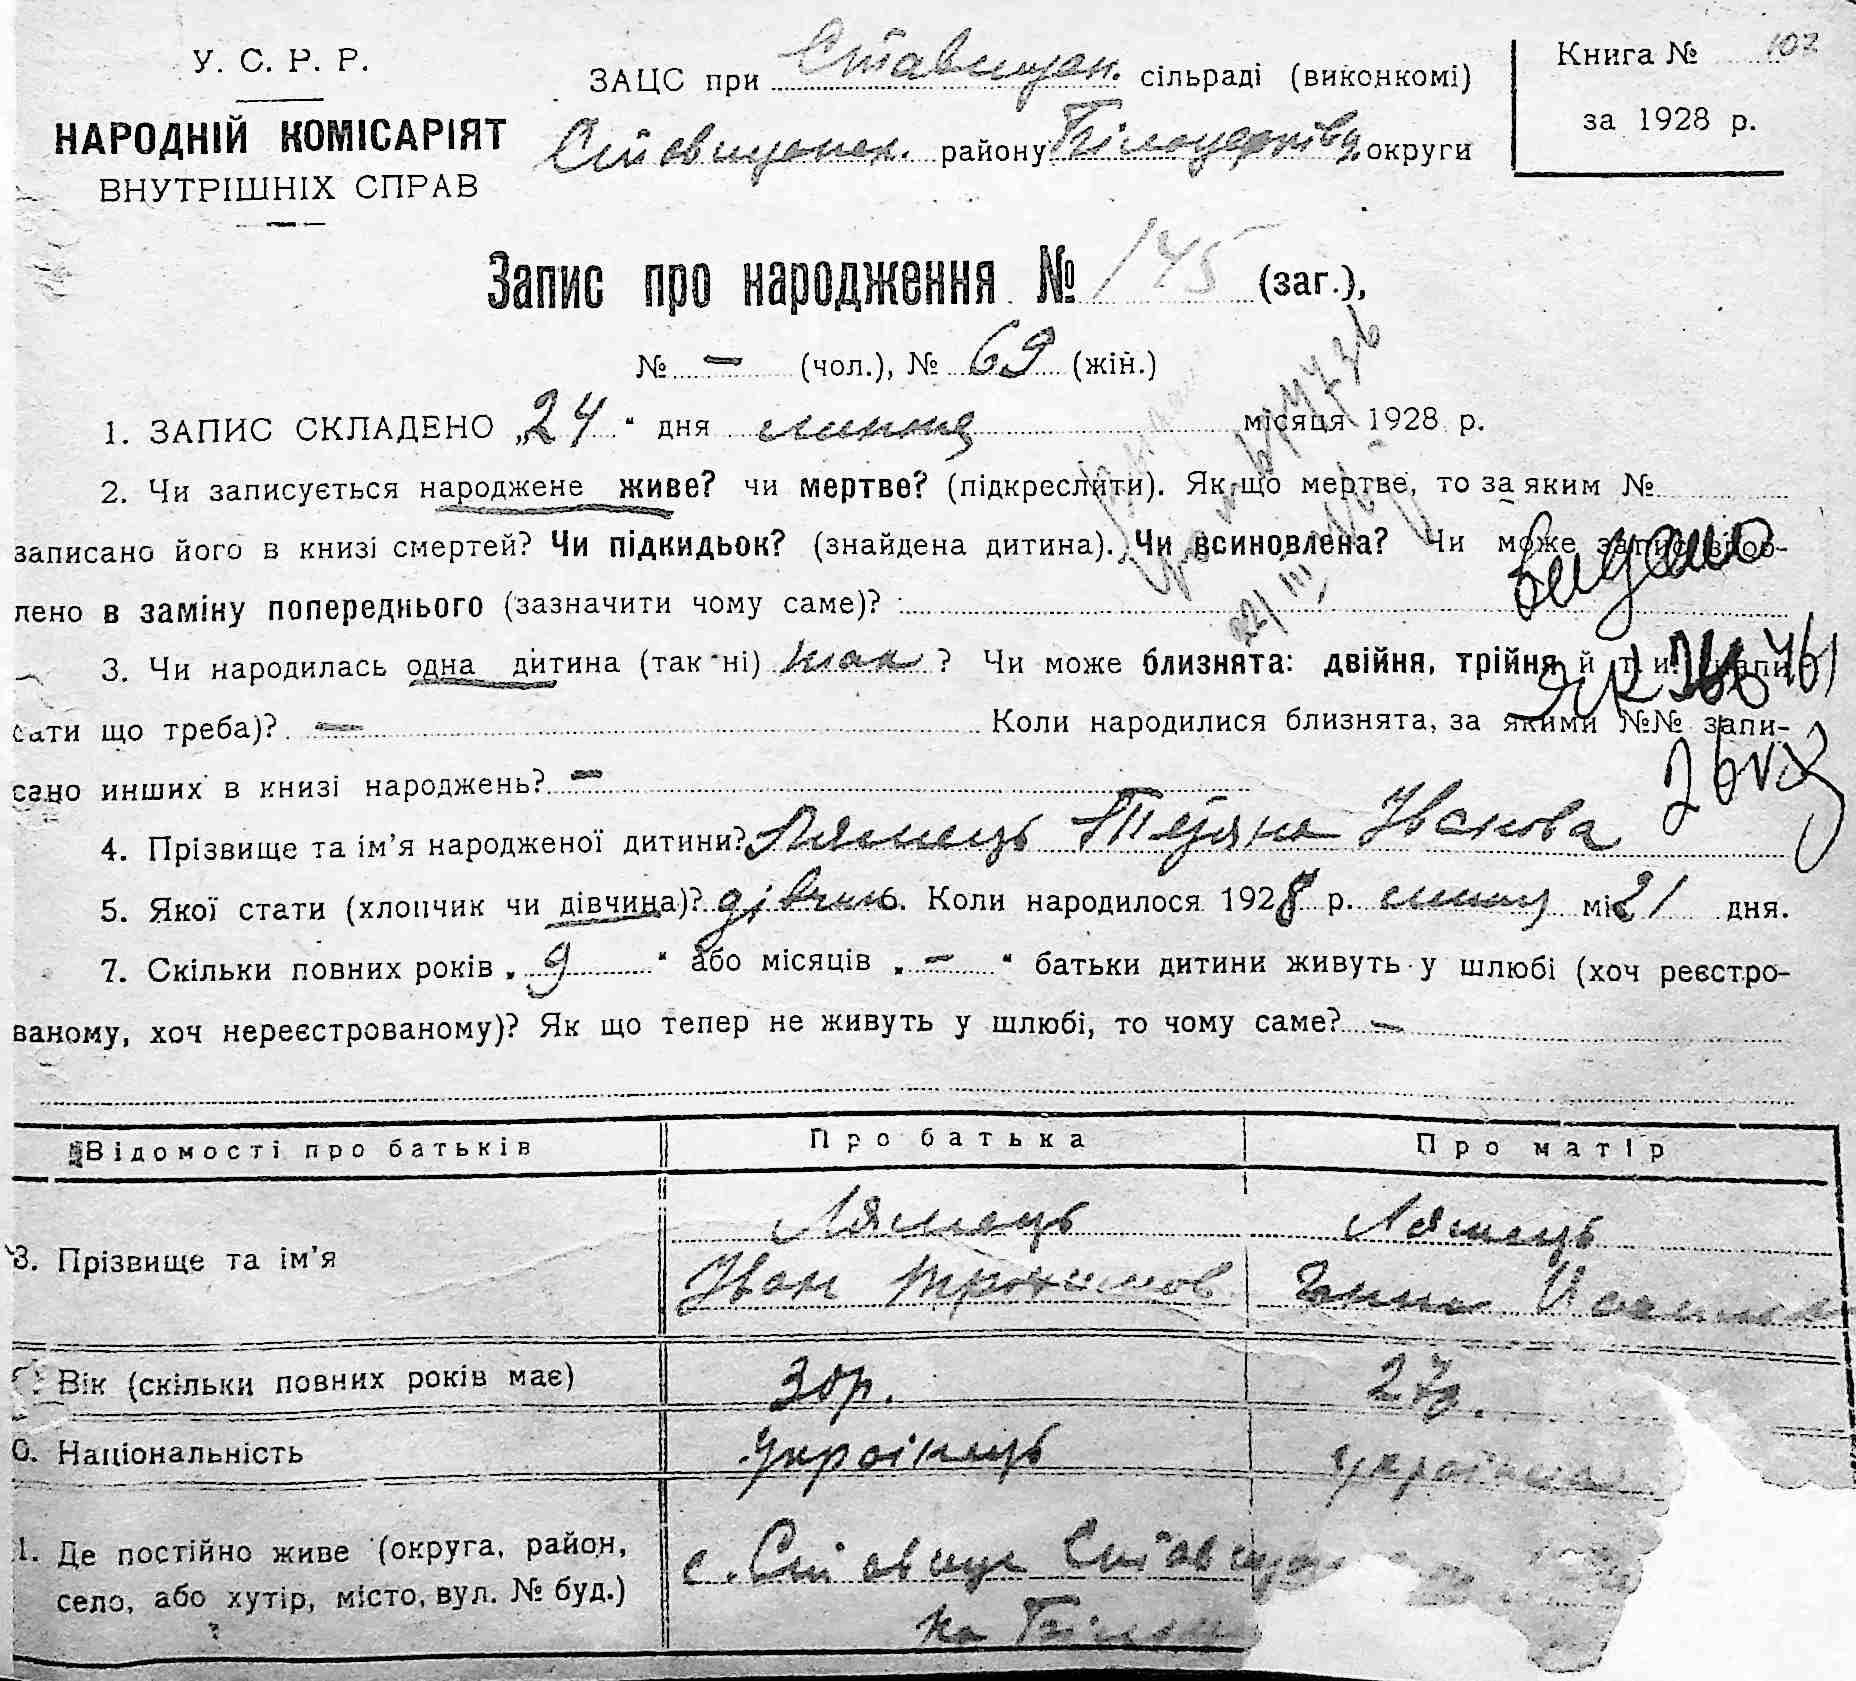 У. С. Р. Р.
НАРОДНІЙ КОМІСАРІЯТ
ВНУТРІШНІХ СПРАВ
ЗАЦС при Ставищан. сільраді (виконкомі)
Ставищанск. району Білоцерків. округи
Книга № 102
за 1928 р.
Запис про народження № 145 (заг.),
№ — (чол.), № 69 (жін.)
1. ЗАПИС СКЛАДЕНО „24“ дня липня місяця 1928 р.
2. Чи записується народжене живе? чи мертве? (підкреслити). Як що мертве, то за яким №
записано його в книзі смертей? Чи підкидьок? (знайдена дитина). Чи всиновлена? Чи може запис зроб-
лено в заміну попереднього (зазначити чому саме)?
видано
3. Чи народилась одна дитина (так ні) так? Чи може близнята: двійня, трійня й т. и. (напи-
сати що треба)? — Коли народилися близнята, за якими №№ запи-
сано инших в книзі народжень? —
4. Прізвище та ім'я народженої дитини? Лямець Тетяна Іванова
5. Якої стати (хлопчик чи дівчина)? дівчина. Коли народилося 1928 р. липня мі 21 дня.
7. Скільки повних років „9“ або місяців „—“ батьки дитини живуть у шлюбі (хоч реєстро-
ваному, хоч нереєстрованому)? Як що тепер не живуть у шлюбі, то чому саме? —
Відомості про батьків Про батька Про матір
Лямець Лямець
8. Прізвище та ім'я
Іван Трохимов Ганна
Вік (скільки повних років має) 30р. 27р.
0. Національність Українець Українка
1. Де постійно живе (округа, район,
село, або хутір, місто, вул. № буд.)
с. Ставище
на